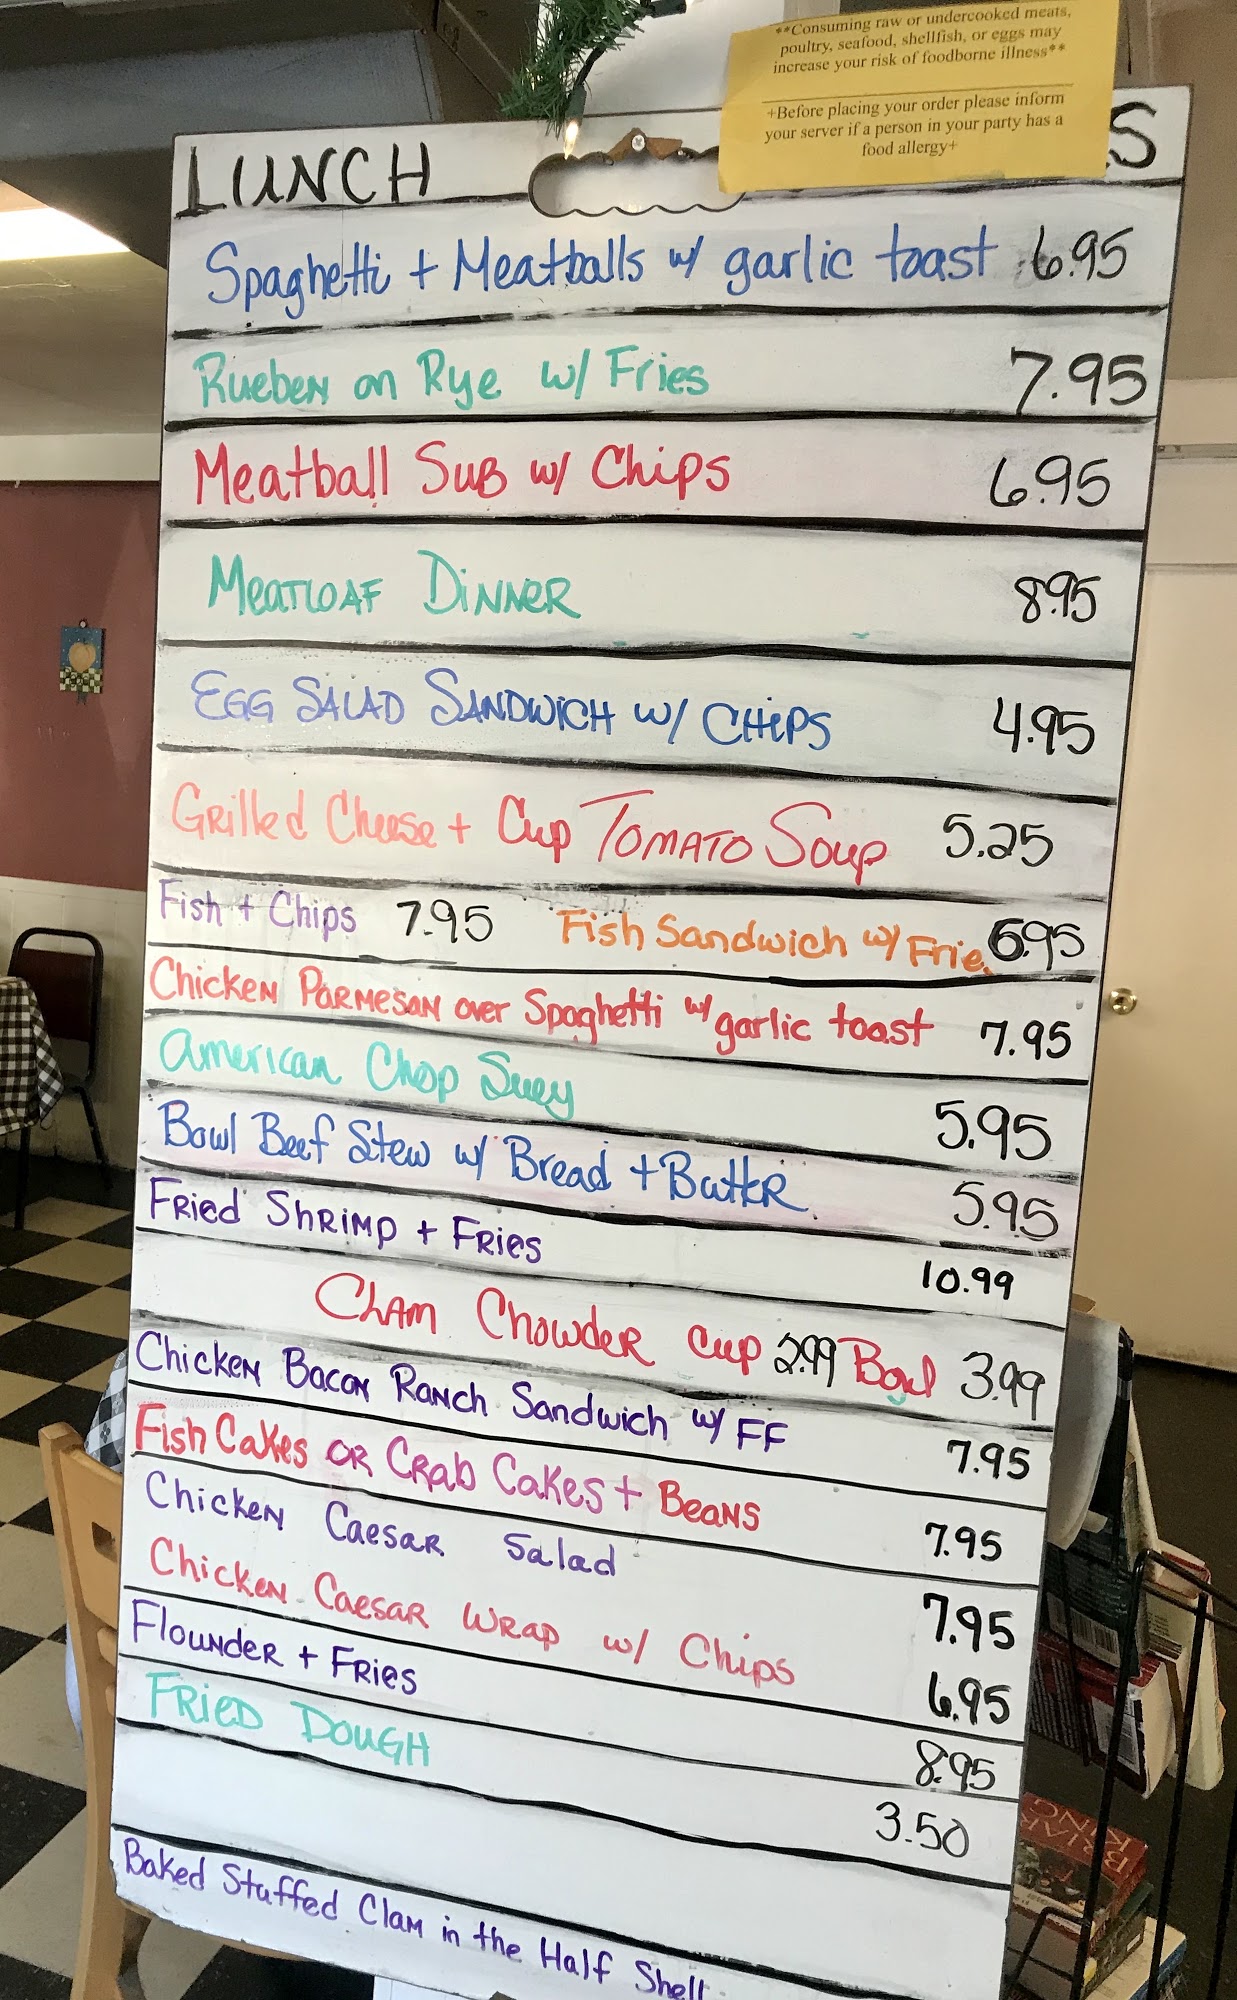 **Consuming raw or undercooked meats,
poultry, seafood, shellfish, or eggs may
increase your risk of foodborne illness**
+Before placing your order please inform
your server if a person in your party has a
food allergy+
LUNCH S
Spaghetti + Meatballs w/ garlic toast 6.95
Rueben on Rye w/ Fries 7.95
Meatball Sub w/ Chips 6.95
Meatloaf Dinner 8.95
EGG SALAD SANDWICH w/ CHIPS 4.95
Grilled Cheese + Cup TOMATO Soup 5.25
Fish + Chips 7.95 Fish Sandwich w/ Frie 6.95
Chicken Parmesan over Spaghetti w/ garlic toast 7.95
American Chop Suey 5.95
Bowl Beef Stew w/ Bread + Butter 5.95
Fried Shrimp + Fries 10.99
Clam Chowder Cup 2.99 Bowl 3.99
Chicken Bacon Ranch Sandwich w/ FF 7.95
Fish Cakes or Crab Cakes + Beans 7.95
Chicken Caesar Salad 7.95
Chicken Caesar Wrap w/ Chips 6.95
Flounder + Fries 8.95
FRIED DOUGH 3.50
Baked Stuffed Clam in the Half Shell